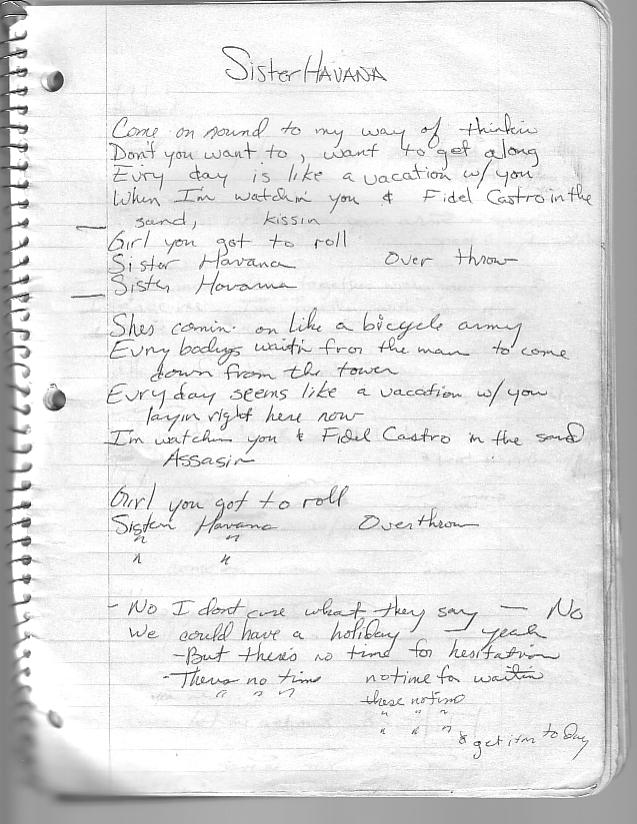 Sister HAVANA
Come on round to my way of thinkin
Don't you want to, want to get along
Evry day is like a vacation w/ you
When I'm watchin you & Fidel Castro in the
sand, kissin
Girl you got to roll
Sister Havana Over throw
Sister Havana
Shes comin on like a bicycle army
Evry bodys waitin for the man to come
down from the tower
Evry day seems like a vacation w/ you
layin right here now
I'm watchin you & Fidel Castro in the sand
Assasin
Girl you got to roll
Sister Havana Overthrow
" "
" "
- No I dont care what they say — No
We could have a holiday — yeah
- But there's no time for hesitation
- Theres no time no time for waitin
" " " theres no time
" " "
" " " & get it today